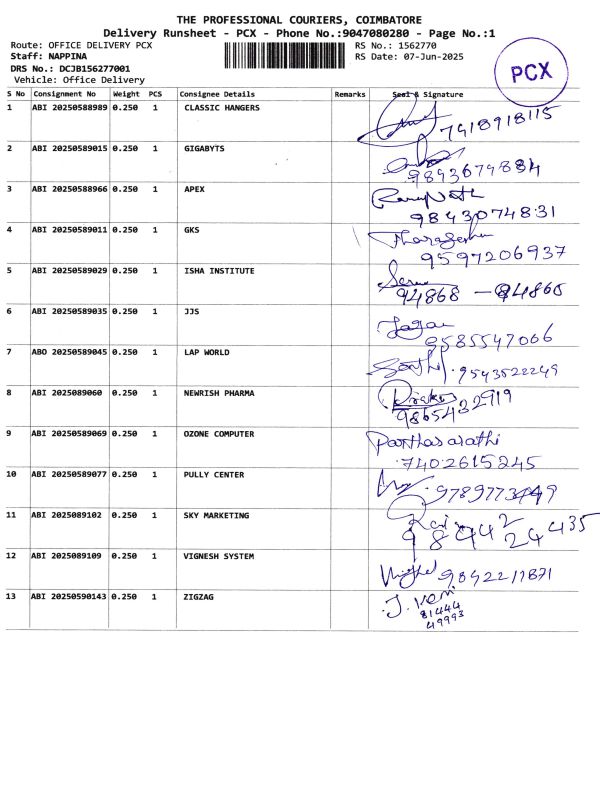 THE PROFESSIONAL COURIERS, COIMBATORE
Delivery Runsheet - PCX - Phone No.:9047080280 - Page No.:1
Route: OFFICE DELIVERY PCX
Staff: NAPPINA
DRS No.: DCJB156277001
Vehicle: Office Delivery
RS No.: 1562770
RS Date: 07-Jun-2025
PCX
S No Consignment No Weight PCS Consignee Details Remarks Seal & Signature
1 ABI 20250588989 0.250 1 CLASSIC HANGERS
7418918115
2 ABI 20250589015 0.250 1 GIGABYTS
9893679884
3 ABI 20250588966 0.250 1 APEX
9843074831
4 ABI 20250589011 0.250 1 GKS
9597206937
5 ABI 20250589029 0.250 1 ISHA INSTITUTE
94868 - 84865
6 ABI 20250589035 0.250 1 JJS
Jagan
9585547066
7 ABO 20250589045 0.250 1 LAP WORLD
9543522249
8 ABI 2025089060 0.250 1 NEWRISH PHARMA
9865432919
9 ABI 20250589069 0.250 1 OZONE COMPUTER
Parthasarathi
7402615245
10 ABI 20250589077 0.250 1 PULLY CENTER
11 ABI 2025089102 0.250 1 SKY MARKETING
98442 24435
12 ABI 2025089109 0.250 1 VIGNESH SYSTEM
13 ABI 20250590143 0.250 1 ZIGZAG
J. Veni
81444
49993